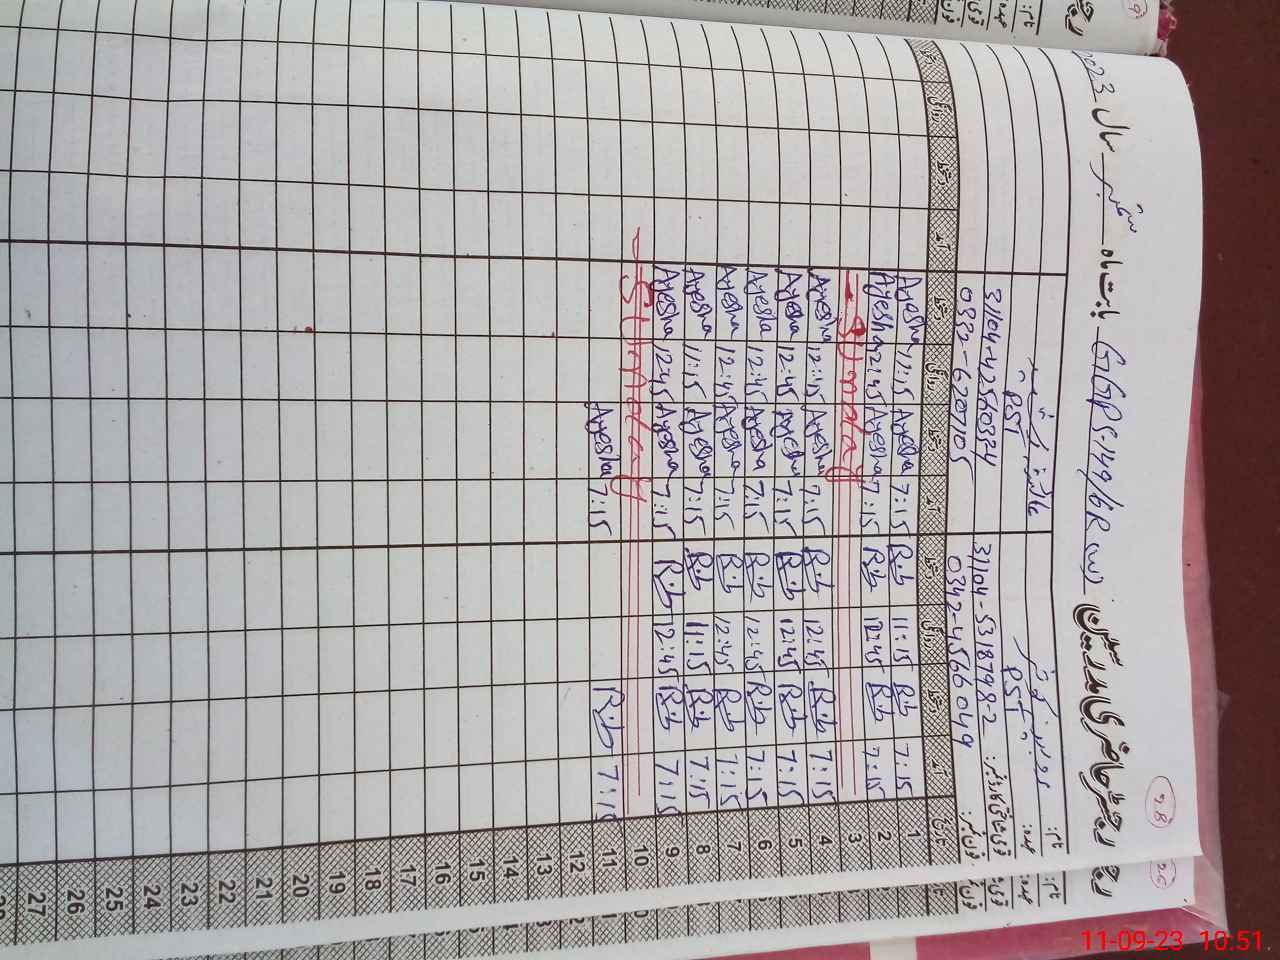 رجسٹر حاضری مدرسین GGPS-149/6R بابت ماہ ستمبر سال 2023
28
نام:
عہدہ:
قومی شناختی کارڈ نمبر:
فون نمبر:
PST
31104-5318798-2
0342-4566049
PST
31104-4256038-4
تاریخ آمد دستخط روانگی دستخط آمد دستخط روانگی دستخط آمد دستخط روانگی دستخط
1 7:15 R.b 11:15 R.b 7:15 Ayesha 11:15 Ayesha
2 7:15 R.b 12:45 R.b 7:15 Ayesha 12:45 Ayesha
3 Sunday
4 7:15 R.b 12:45 R.b 7:15 Ayesha 12:45 Ayesha
5 7:15 R.b 12:45 R.b 7:15 Ayesha 12:45 Ayesha
6 7:15 R.b 12:45 R.b 7:15 Ayesha 12:45 Ayesha
7 7:15 R.b 12:45 R.b 7:15 Ayesha 12:45 Ayesha
8 7:15 R.b 11:15 R.b 7:15 Ayesha 11:15 Ayesha
9 7:15 R.b 12:45 R.b 7:15 Ayesha 12:45 Ayesha
10 Sunday
11 7:15 R.b 7:15 Ayesha
12
13
14
15
16
17
18
19
20
21
22
23
24
25
26
27
11-09-23 10:51